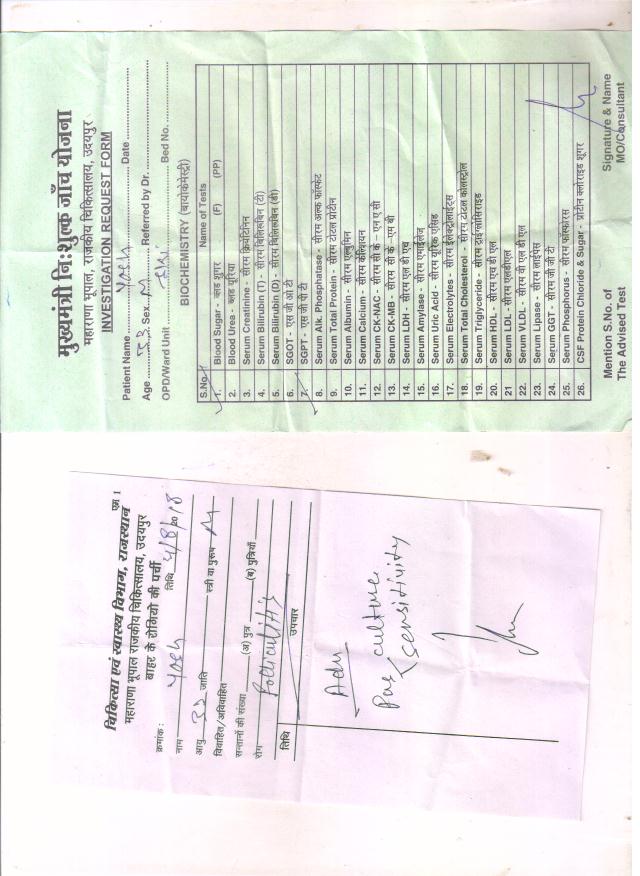 मुख्यमंत्री निःशुल्क जाँच योजना
महाराणा भूपाल, राजकीय चिकित्सालय, उदयपुर
INVESTIGATION REQUEST FORM
Patient Name Yash Date
Age Sex M Referred by Dr.
OPD/Ward Unit Bed No.
BIOCHEMISTRY (बायोकेमेस्ट्री)
S.No. Name of Tests
1. Blood Sugar - ब्लड शुगर (F) (PP)
2. Blood Urea - ब्लड यूरिया
3. Serum Creatinine - सीरम क्रियटिनिन
4. Serum Bilirubin (T) - सीरम बिलिरूबिन (टी)
5. Serum Bilirubin (D) - सीरम बिलिरूबिन (डी)
6. SGOT - एस जी ओ टी
7. SGPT - एस जी पी टी
8. Serum Alk. Phosphatase - सीरम अल्क फॉस्फेट
9. Serum Total Protein - सीरम टाटल प्रोटीन
10. Serum Albumin - सीरम एल्बुमिन
11. Serum Calcium - सीरम केल्शियम
12. Serum CK-NAC - सीरम सी के - एन ए सी
13. Serum CK-MB - सीरम सी के - एम बी
14. Serum LDH - सीरम एल डी एच
15. Serum Amylase - सीरम एमाईलेज्
16. Serum Uric Acid - सीरम यूरिक एसिड
17. Serum Electrolytes - सीरम ईलेक्ट्रोलाईट्स
18. Serum Total Cholesterol - सीरम टोटल कोलस्ट्रोल
19. Serum Triglyceride - सीरम ट्राईग्लिसिराइड
20. Serum HDL - सीरम एच डी एल
21 Serum LDL - सीरम एलडीएल
22. Serum VLDL - सीरम वी एल डी एल
23. Serum Lipase - सीरम लाईपेस
24. Serum GGT - सीरम जी जी टी
25. Serum Phosphorus - सीरम फॉस्फोरस
26. CSF Protein Chloride & Sugar - प्रोटीन क्लोराइड शूगर
Mention S.No. of Signature & Name
The Advised Test MO/Consultant
चिकित्सा एवं स्वास्थ्य विभाग, राजस्थान एम. 1
महाराणा भूपाल राजकीय चिकित्सालय, उदयपुर
बाहर के रोगियो की पर्ची
क्रमांक : तिथि 4/8/2018
नाम Yash
आयु जाति स्त्री या पुरूष M
विवाहित/अविवाहित
सन्तानों की संख्या (अ) पुत्र (ब) पुत्रियाँ
रोग Folliculitis
तिथि उपचार
Adv
Pus culture
sensitivity